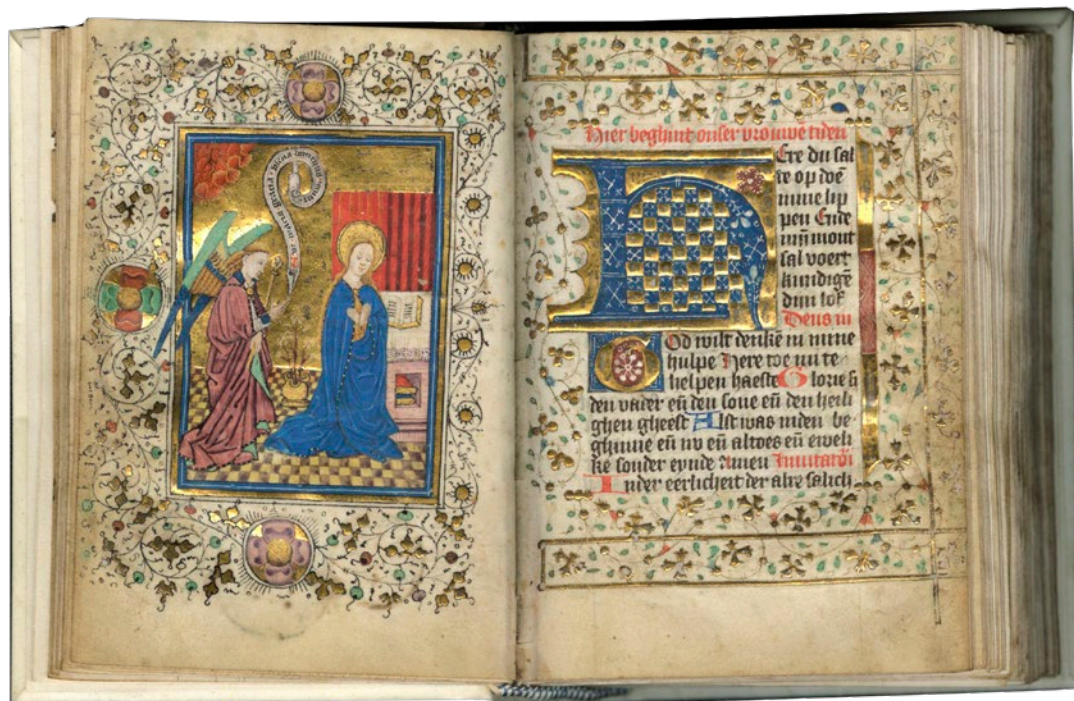 aue maria gracia plena dominus
Hier beghint onser vrouwē tiden
Ere du salt
te op doē
mine lip
pen Ende
mijn mont
sal voert
kundigē
dijn lof
Deus in
God wilt denkē in mine
hulpe Here toe mi te
helpen haeste Glorie si
den vader eñ den sone eñ den heili
ghen gheest Alst was inden be
ghinne eñ nv eñ altoes eñ eweli
ke sonder eynde Amen Inuitatori
In der eerlicheit der alre salich